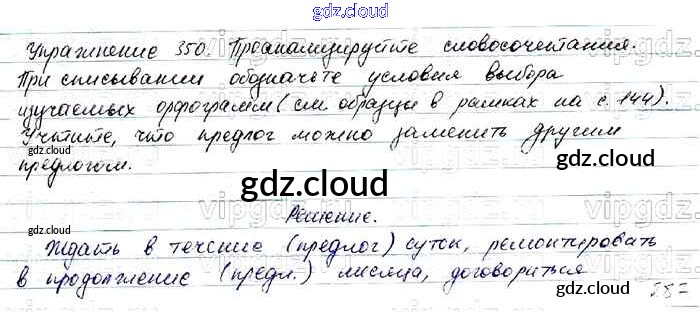 gdz.cloud
Упражнение 350. Проанализируйте словосочетания.
При списывании обозначьте условия выбора
изучаемых орфограмм (см. образцы в рамках на с. 144).
Учтите, что предлог можно заменить другим
предлогом.
gdz.cloud
gdz.cloud
gdz.cloud
Решение.
Ждать в течение (предлог) суток, ремонтировать
в продолжение (предл.) месяца, договориться
gdz.cloud
gdz.cloud
287